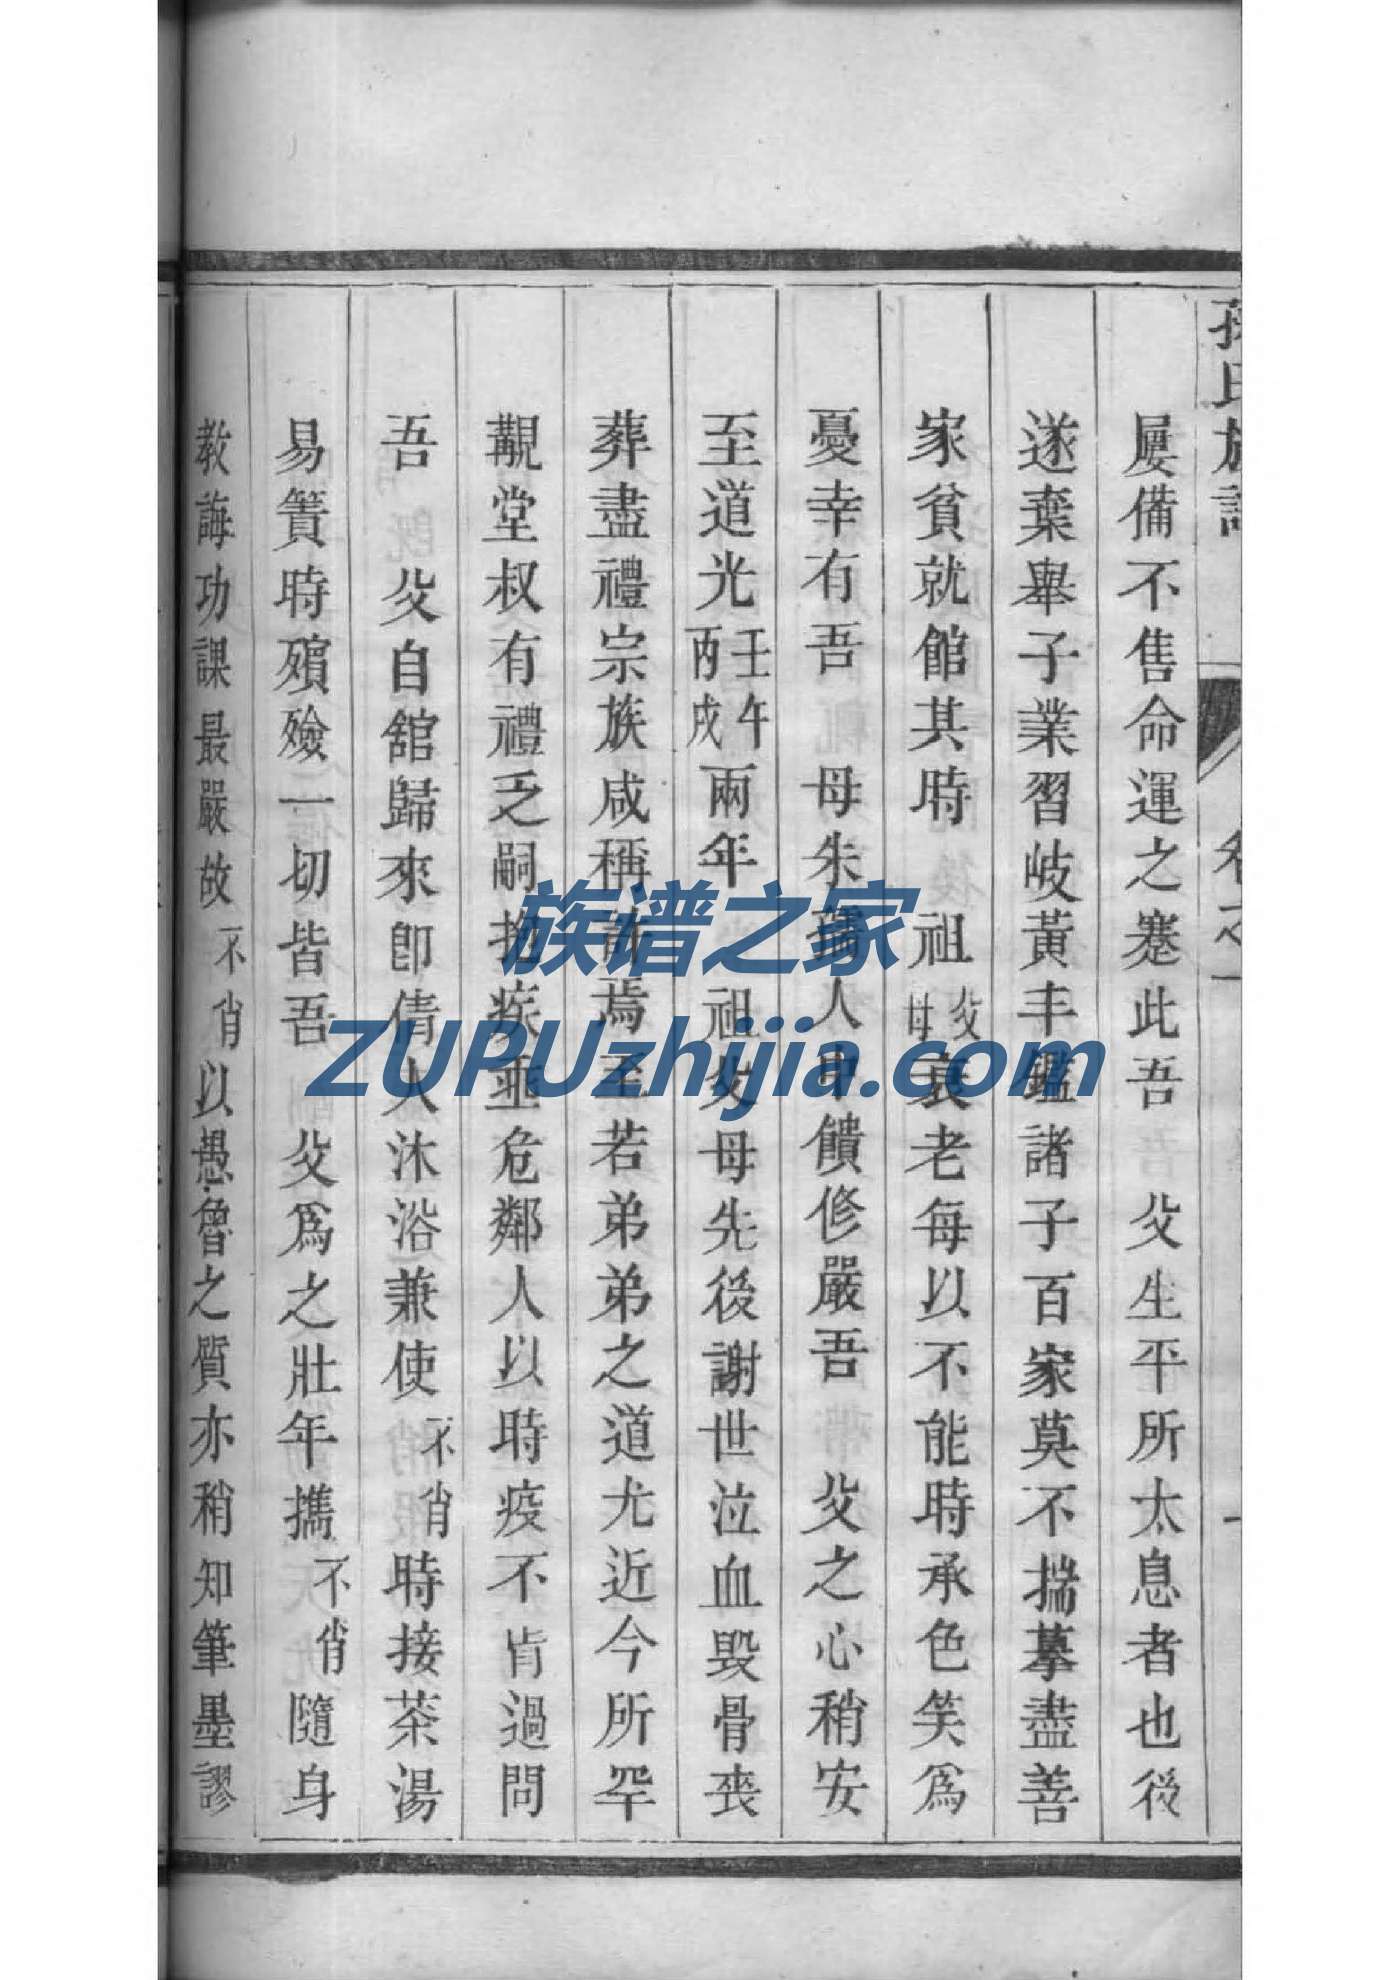 孫氏族譜
卷之一
屢備不售命運之蹇此吾 父生平所太息者也後
遂棄舉子業習岐黃丰鑑諸子百家莫不揣摹盡善
家貧就館其時 祖父母衰老每以不能時承色笑為
憂幸有吾 母朱孺人中饋修嚴吾 父之心稍安
至道光壬午丙戌兩年 祖父母先後謝世泣血毀骨喪
葬盡禮宗族咸稱許焉至若弟弟之道尤近今所罕
覯堂叔有禮乏嗣抱疾亟危鄰人以時疫不肯過問
吾 父自館歸來卽倩人沐浴兼使不肖時接茶湯
易簀時殯殮一切皆吾 父為之壯年攜不肖隨身
教誨功課最嚴故不肖以愚魯之質亦稍知筆墨謬
族谱之家
ZUPUzhijia.com